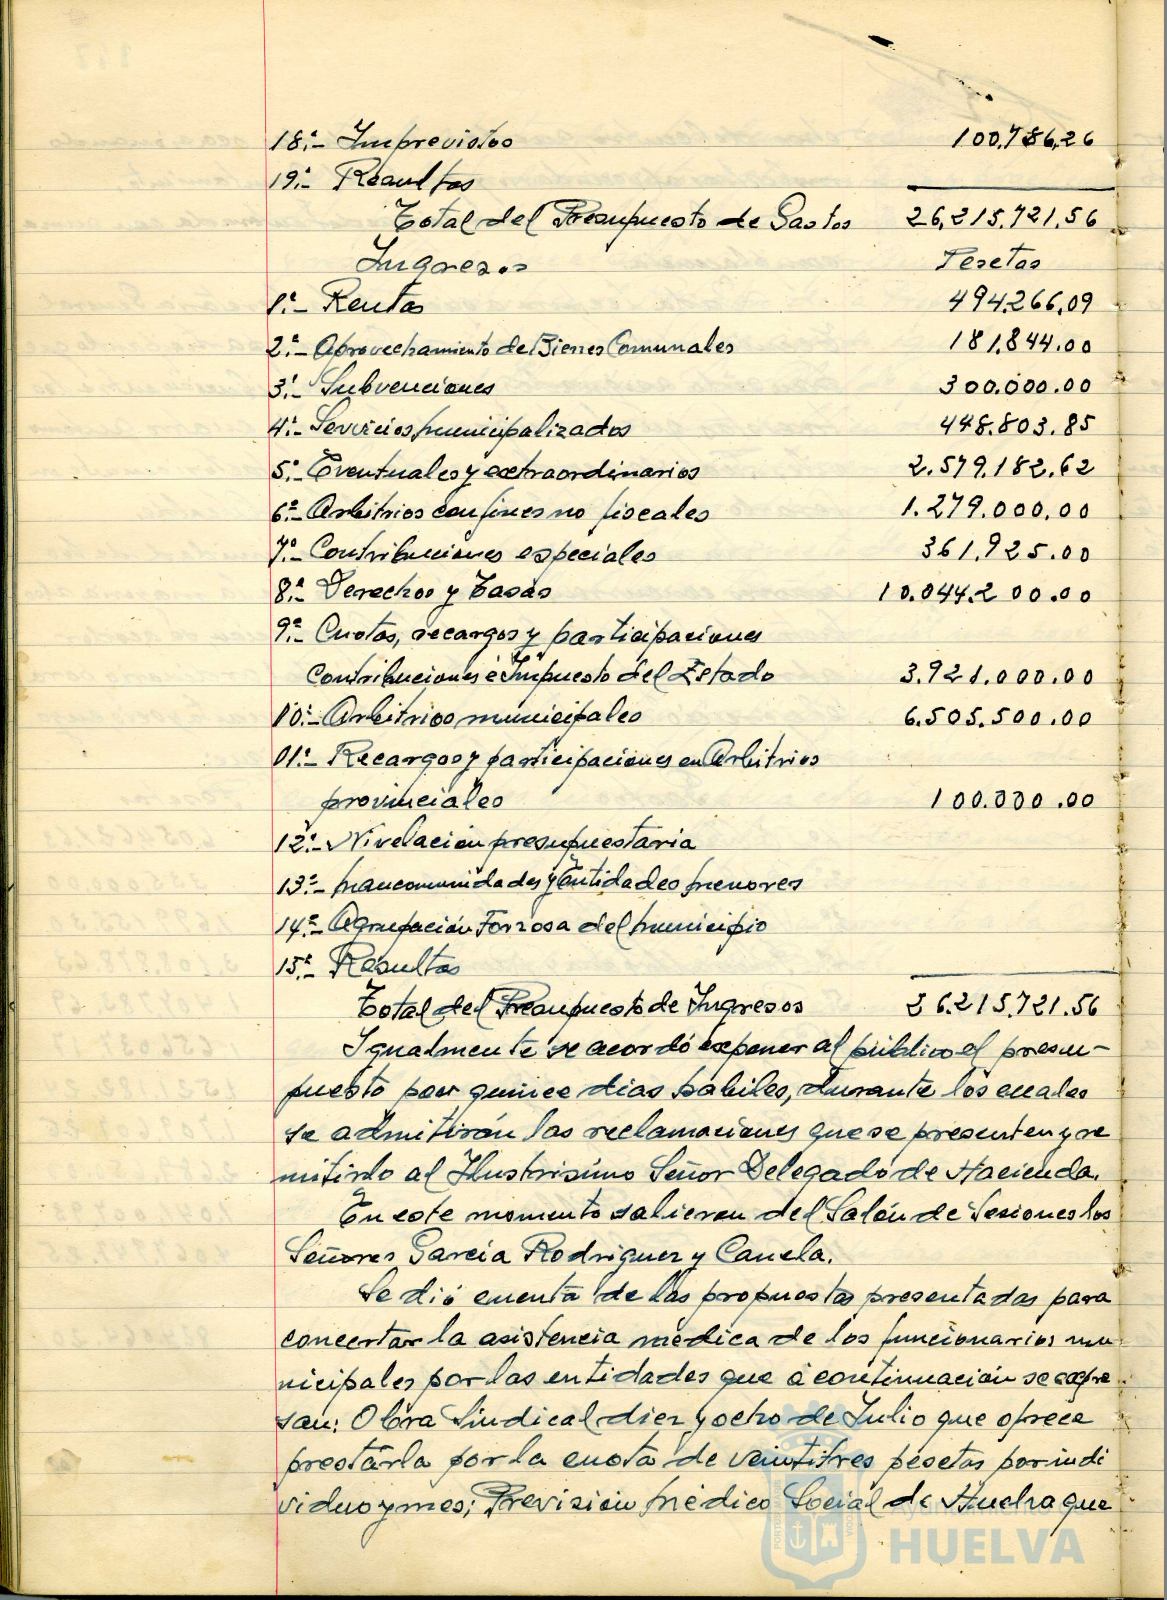 18º.- Imprevistos 100.786,26
19º.- Resultas
Total del Presupuesto de Gastos 26.215.721.56
Ingresos Pesetas
1º.- Rentas 494.266,09
2º.- Aprovechamiento de Bienes Comunales 181.844.00
3º.- Subvenciones 300.000.00
4º.- Servicios municipalizados 448.803.85
5º.- Eventuales y extraordinarios 2.579.182.62
6º.- Arbitrios con fines no fiscales 1.279.000.00
7º.- Contribuciones especiales 361.925.00
8º.- Derechos y Tasas 10.044.200.00
9º.- Cuotas, recargos y participaciones
Contribuciones é Impuesto del Estado 3.921.000.00
10º.- Arbitrios municipales 6.505.500.00
01º.- Recargos y participaciones en Arbitrios
provinciales 100.000.00
12º.- Nivelación presupuestaria
13º.- Mancomunidades y Entidades menores
14º.- Agrupación Forzosa del municipio
15º.- Resultas
Total del Presupuesto de Ingresos 26.215.721.56
Igualmente se acordó exponer al público el presu-
puesto por quince dias hábiles, durante los cuales
se admitirán las reclamaciones que se presenten y re
mitirlo al Ilustrisimo Señor Delegado de Hacienda.
En este momento salieron del Salón de Sesiones los
Señores Garcia Rodriguez y Canela.
Se dió cuenta de las propuestas presentadas para
concertar la asistencia médica de los funcionarios mu-
nicipales por las entidades que á continuación se expre
san: Obra Sindical diez y ocho de Julio que ofrece
prestarla por la cuota de veintitres pesetas por indi
viduo y mes; Previsión médico Social de Huelva que
Ayuntamiento de
HUELVA